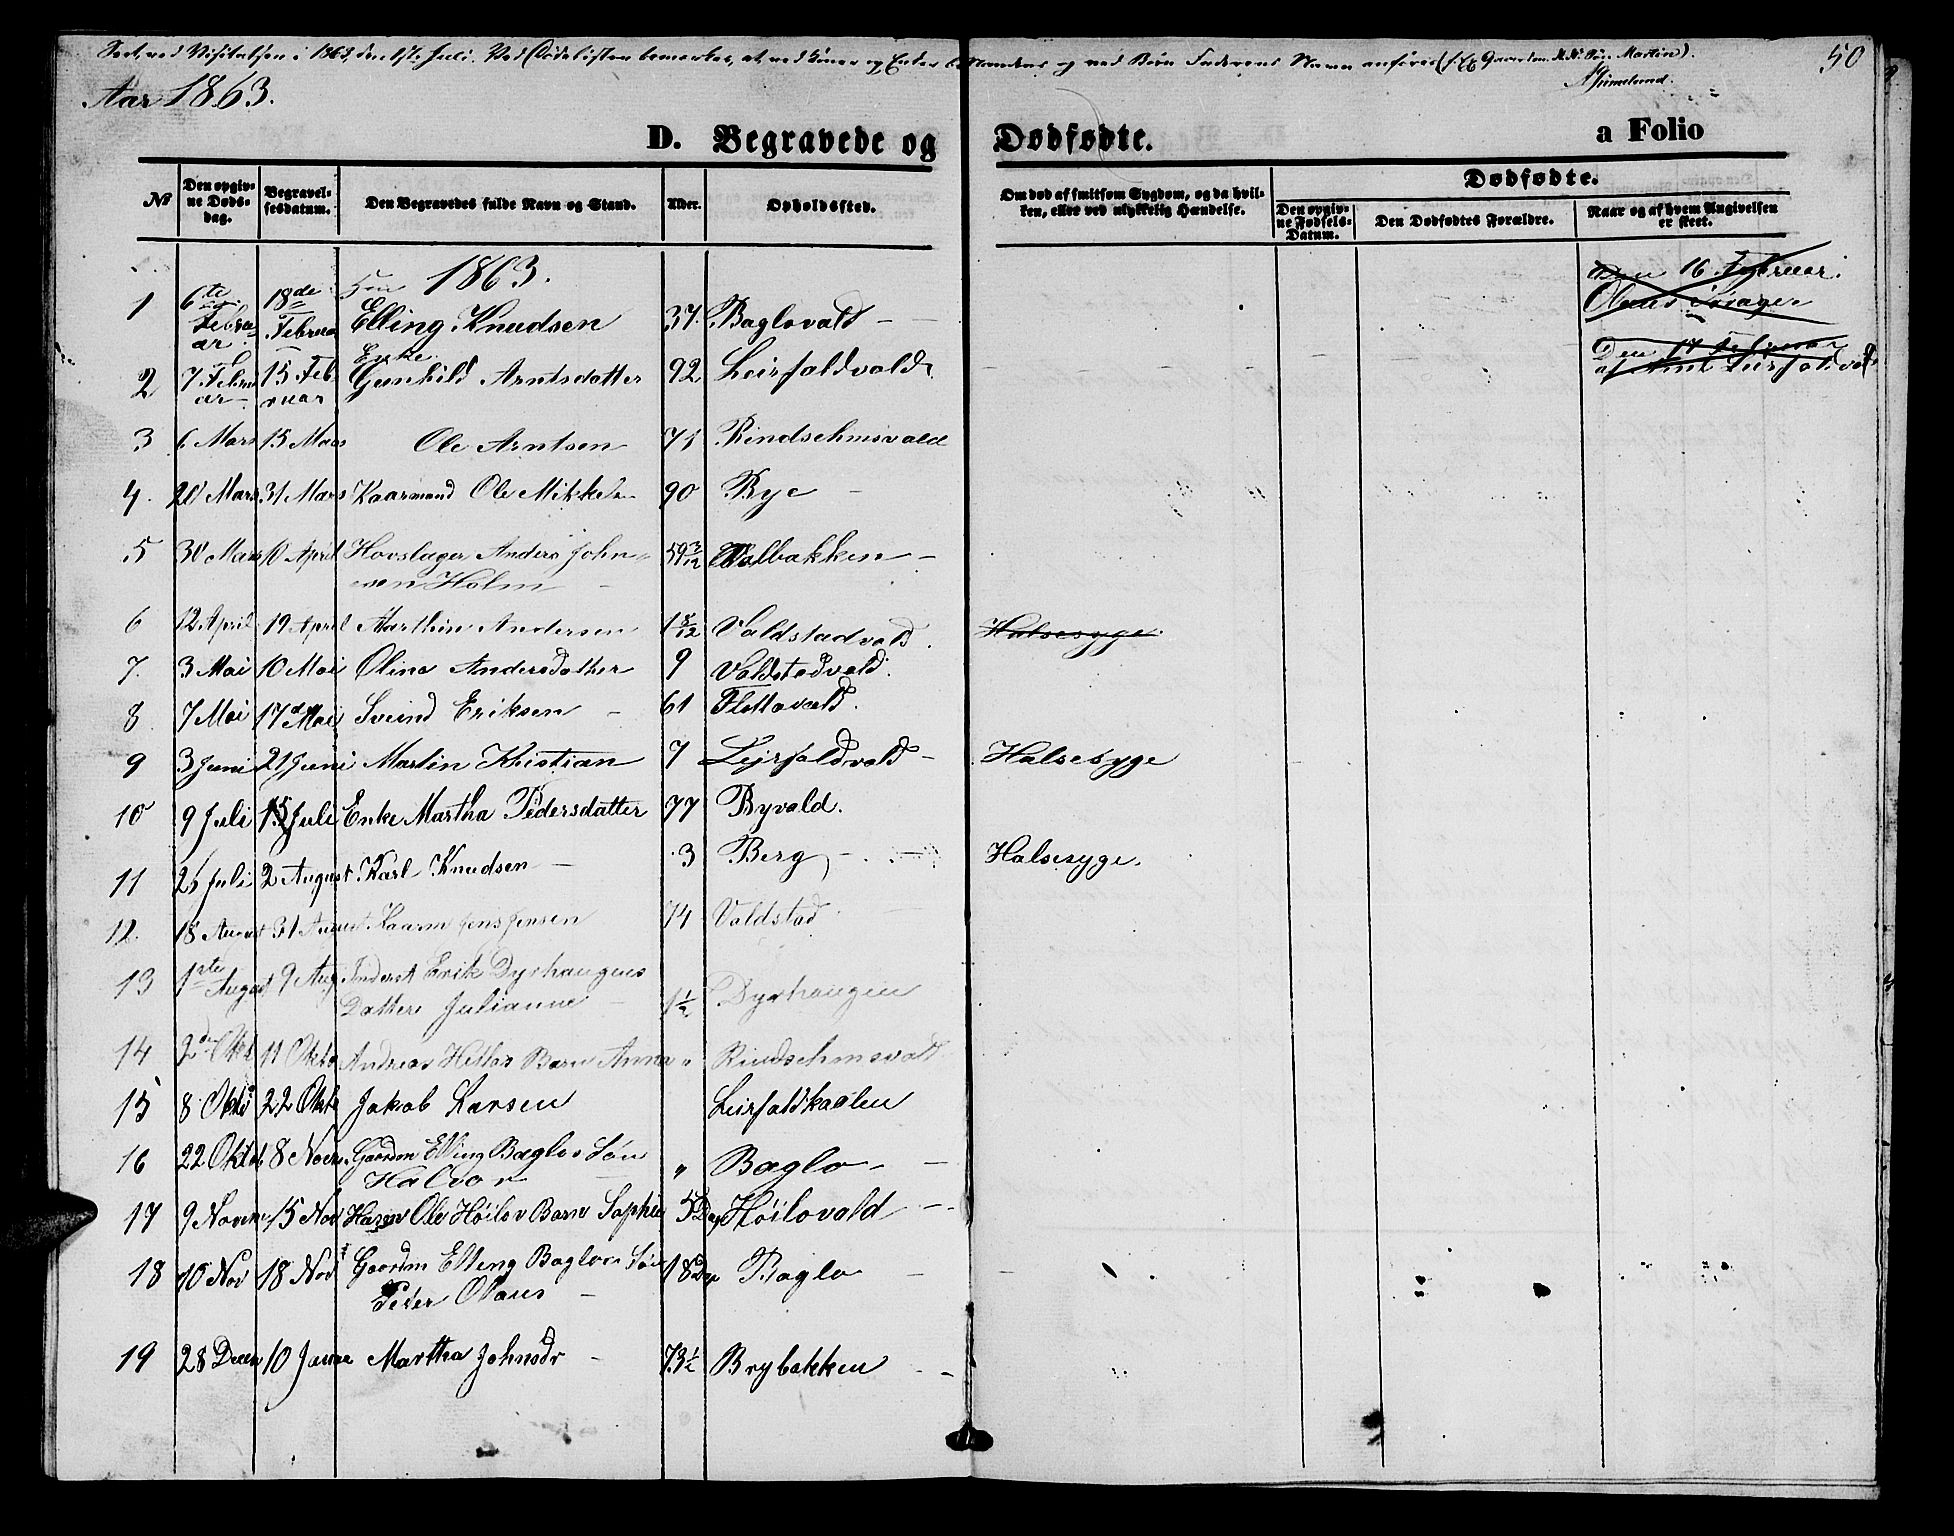 Seet ved Visitatsen i 1863, den 1ste Juli. Ved Dødelisten bemærkes, at ved Koner og Enker Mandens og ved Børn Faderens Navn anføres (f. Ex Gaardm. N. N. Søn Martin).
50
Aar 1863.
Grimelund.
D. Begravede og Dødfødte.
a Folio
№ Den opgivne Dødsdag. Begravelsesdatum. Den Begravedes fulde Navn og Stand. Alder. Opholdssted. Om død af smitsom Sygdom, og da hvilken, eller ved ulykkelig Hændelse. Dødfødte.
Den opgivne Fødsels-Datum. Den Dødfødtes Forældre. Naar og af hvem Angivelsen er skeet.
1863.
1 6te Februar 18de Februar Elling Knudsen 37. Baglovald Den 16 Februar
2 7 Februar 15 Februar Enke Gunhild Arntsdatter 92 Leirfaldvald Den 17 Februar
3 6 Mars 15 Mars Ole Arntsen 71 Rindsehmsvald
4. 20 Mars 31 Mars Kaarmand Ole Mikkelsen 90 Bye
5 30 Mars 10 April Hovslager Anders Johnsen Holm 59 3/12 Valbakken
6 12 April 19 April Marthin Andersen 1 8/12 Valdstadvald. Halsesyge
7. 3 Mai 10 Mai Olina Andersdatter 9 Valdstadvald.
8 7 Mai 17de Mai Svend Eriksen 61 Flottavald.
9 3 Juni 21 Juni Martin Khistian 7 Leirfaldvald Halsesyge
10 9 Juli 15 Juli Enke Martha Pedersdatter 77 Byvald.
11 25 Juli 2 August Karl Knudsen 3 Berg Halsesyge.
12. 18 August 31 August Kaarm Jens Jensen 74 Valdstad
13 1ste August 9 Aug. Inderst Erik Dyrhaugens
Datter Julianne 1½ Dyrhaugen
14 2den Okt 11 Oktb Andreas Hitlos Barn Anna " Rindsehmsvald
15 8 Oktb 22 Oktb Jakob Larsen Leirfaldkaalen
16 22 Oktob 8 Novr. Gaardm Elling Baglos Søn
Halvor " Baglo
17 9 Novem 15 Nov Husm Ole Høilos Barn Sophie 5 Dag Høilovald
18 10 Nov 18 Nov Gaardm Elling Baglos Søn
Peter Olaus 18 Dag Baglo
19 28 Decem 10 Janua Martha Johnsdr 73½ Brybakken